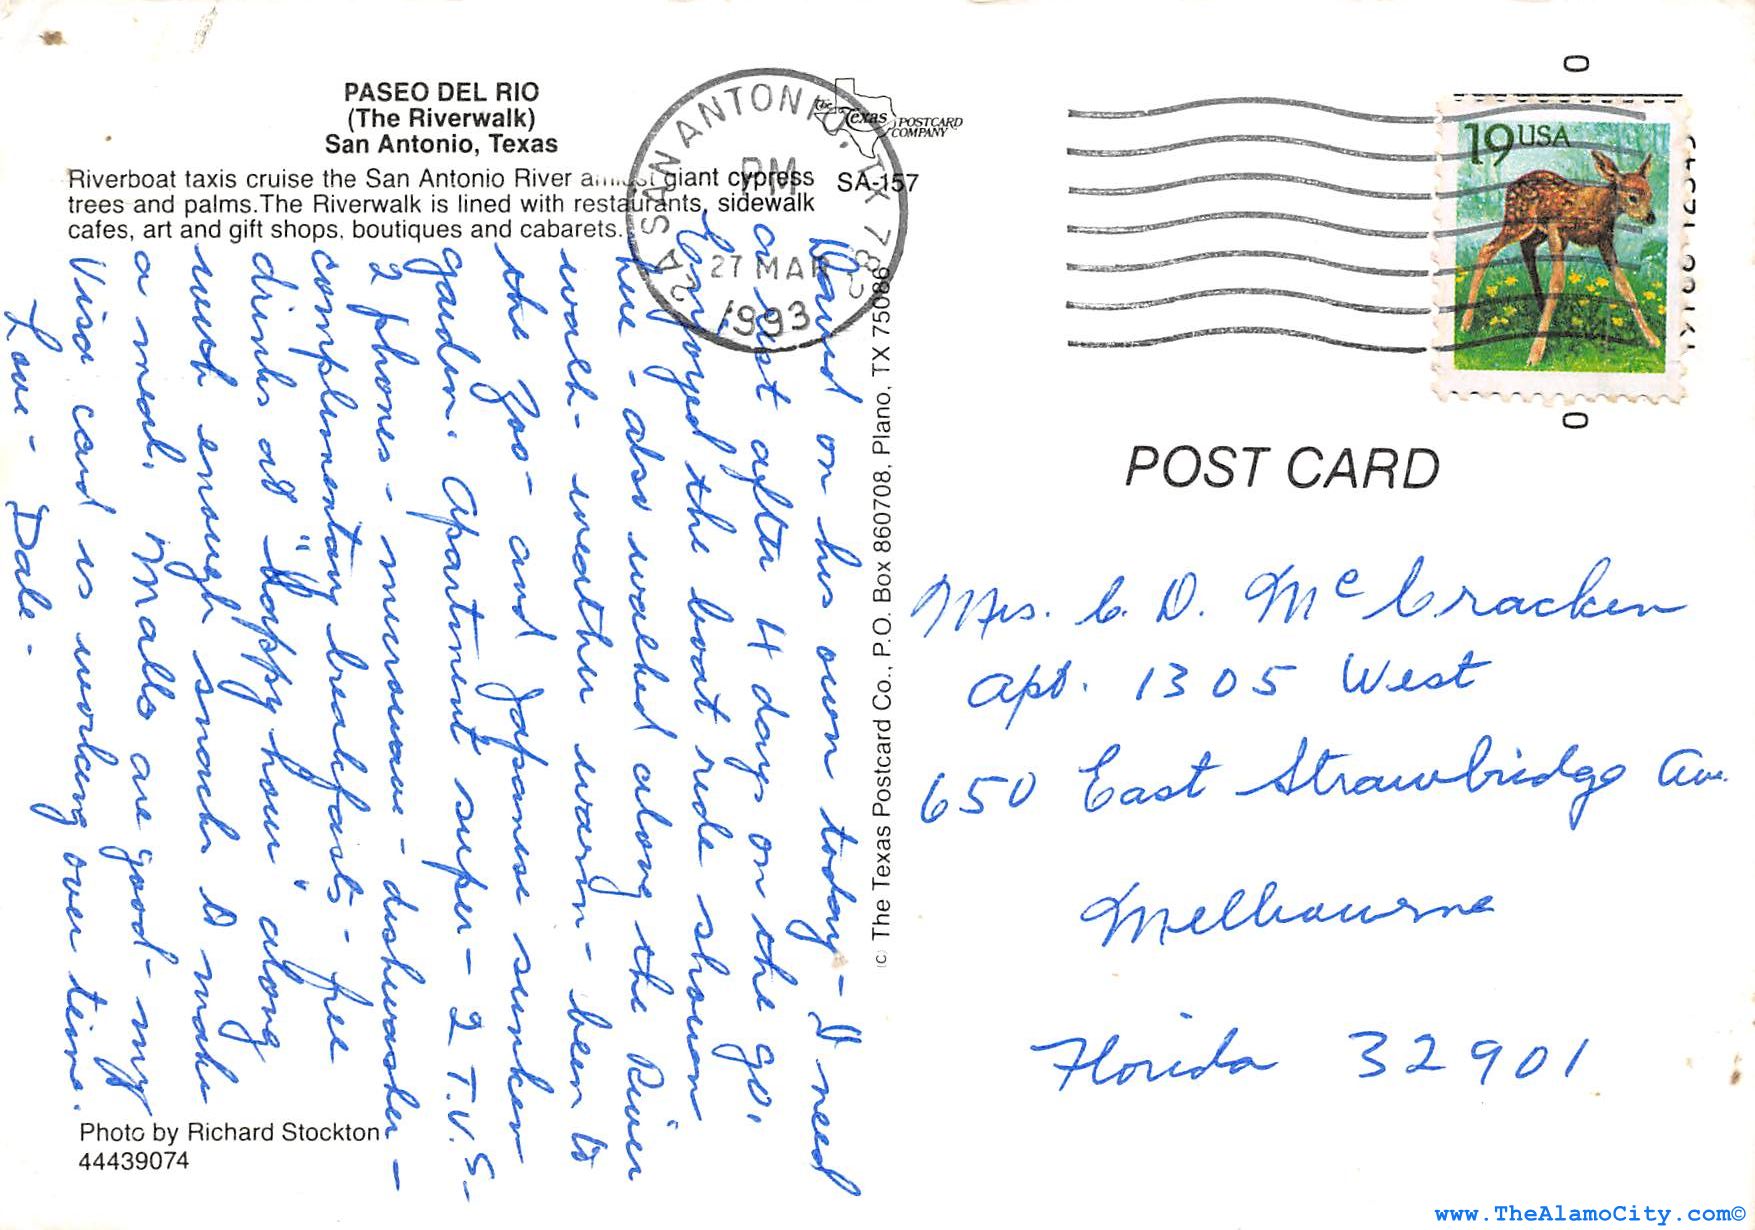 PASEO DEL RIO
(The Riverwalk)
San Antonio, Texas
Riverboat taxis cruise the San Antonio River amidst giant cypress
trees and palms. The Riverwalk is lined with restaurants, sidewalk
cafes, art and gift shops, boutiques and cabarets.
SA-157
The Texas POSTCARD
COMPANY
SAN ANTONIO, TX 782
PM
27 MAR
1993
19 USA
David on his own today - I need
a rest after 4 days on the go.
Enjoyed the boat ride shown
here - also walked along the River
walk - weather warm - been to
the Zoo - and Japanese sunken
garden. Apartment super - 2 T.V.S -
2 phones - microwave - dishwasher -
complimentary breakfasts - free
drinks at "happy hour" along
with enough snacks to make
a meal. Malls are good - my
Visa card is working over time.
Love - Dale -
Photo by Richard Stockton
44439074
(C) The Texas Postcard Co., P.O. Box 860708, Plano, TX 75086
POST CARD
Mrs. C. D. McCracken
Apt. 1305 West
650 East Strawbridge Ave.
Melbourne
Florida 32901
www.TheAlamoCity.com©